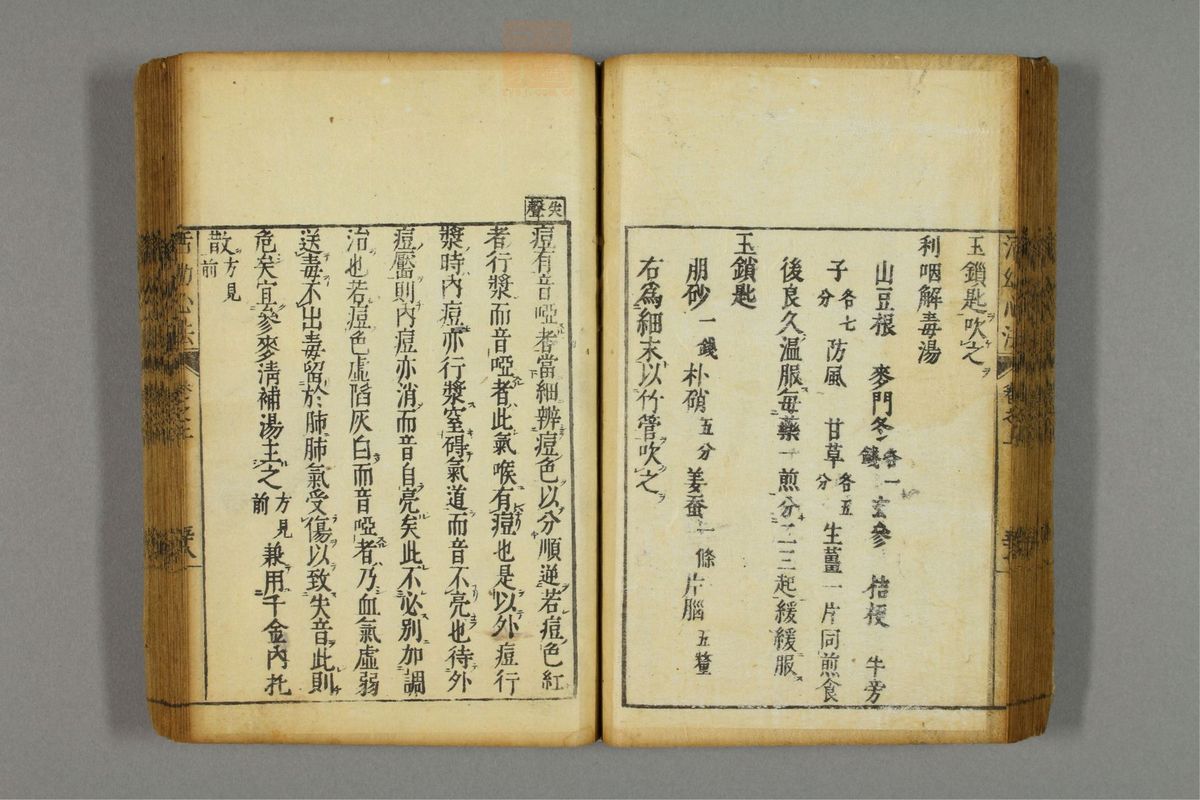 玉鎖匙吹之
利咽解毒湯
山豆根 麥門冬各一錢 玄參 桔梗 牛旁
子各七分 防風 甘草各五分 生薑一片同煎食
後良久溫服每藥一煎分二三起緩緩服
玉鎖匙
朋砂一錢 朴硝五分 姜蚕一條 片腦五釐
右爲細末以竹管吹之
失聲
痘有音啞者當細辨痘色以分順逆若痘色紅
者行漿而音啞者此氣喉有痘也是以外痘行
漿時內痘亦行漿窒碍氣道而音不亮也待外
痘靨則內痘亦消而音自亮矣此不必別加調
治也若痘色虛陷灰白而音啞者乃血氣虛弱
送毒不出毒留於肺肺氣受傷以致失音此則
危矣宜參麥清補湯主之方見前 兼用千金內托
散方見前
活幼心法